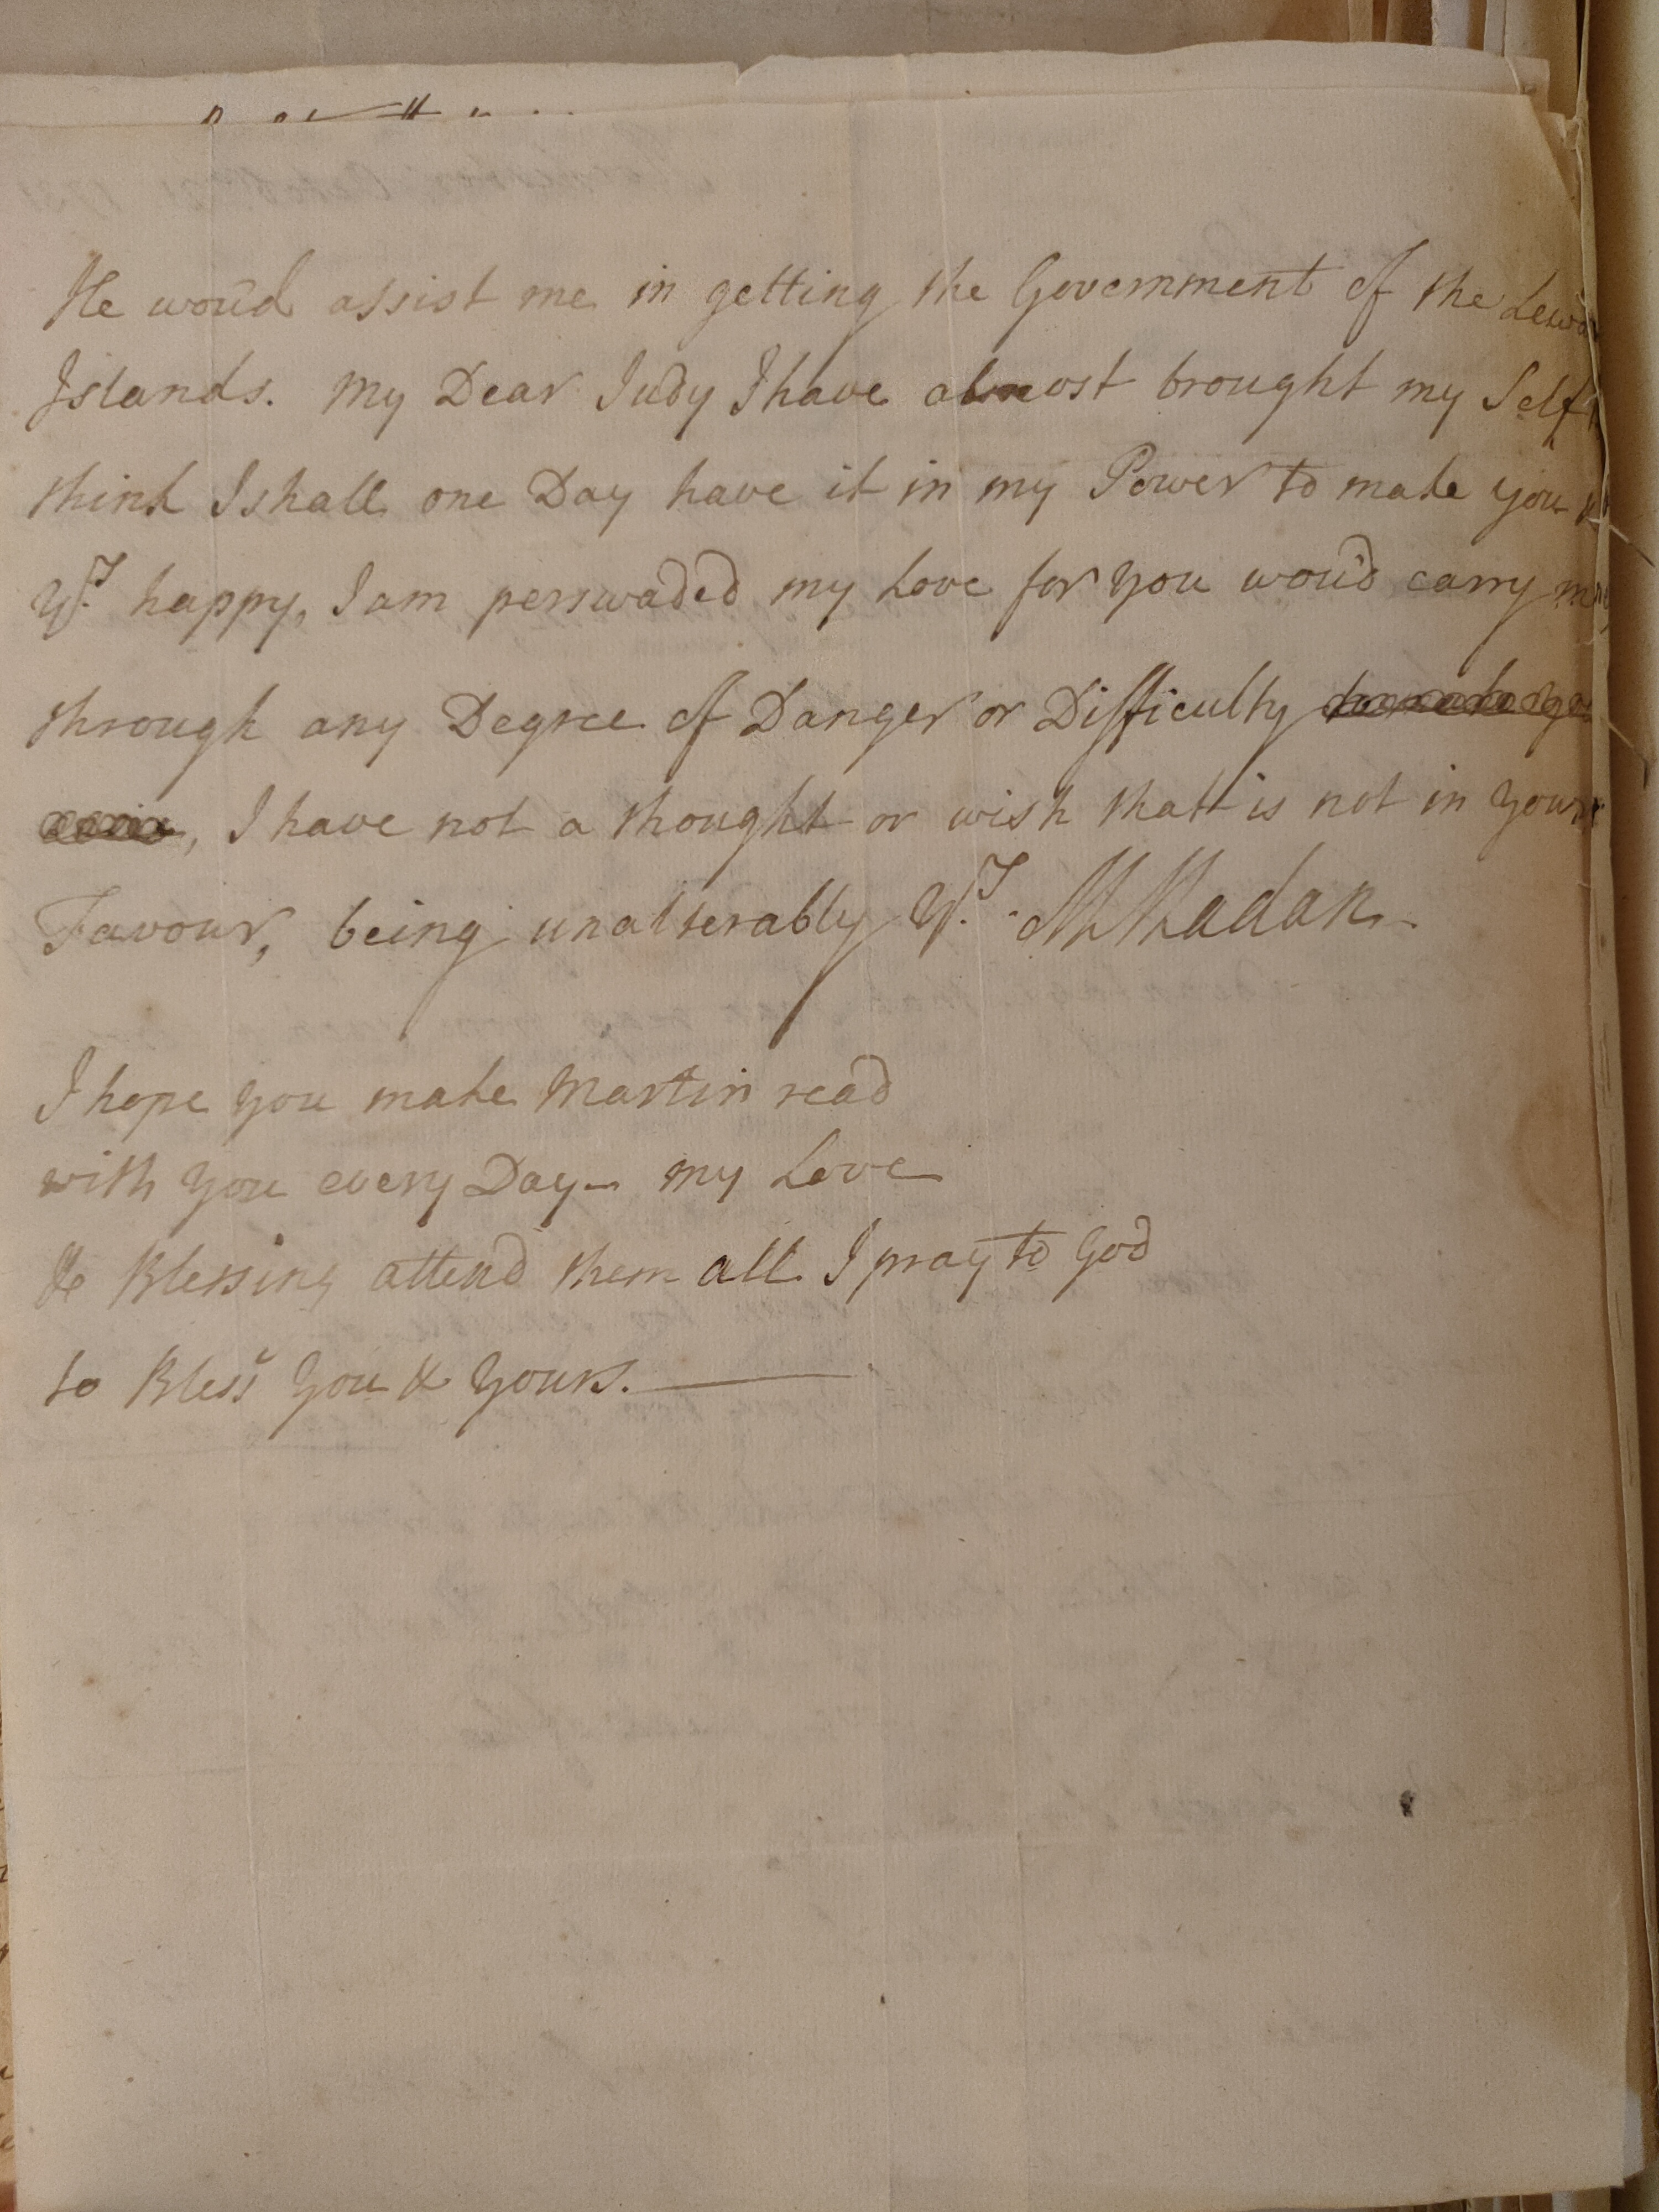 He wou'd assist me in getting the Government of the
Islands. My Dear Judy I have almost brought my Self
think I shall one Day have it in my Power to make you
Yrs. happy, I am perswaded my Love for you wou'd carry me
through any Degree of Danger or Difficulty
, I have not a thought or wish thatt is not in your
Favour, being unalterably Yrs. MMadan
I hope you make Martin read
with you every Day - my Love
& Blessing attend them all I pray to God
to Bless you & yours.